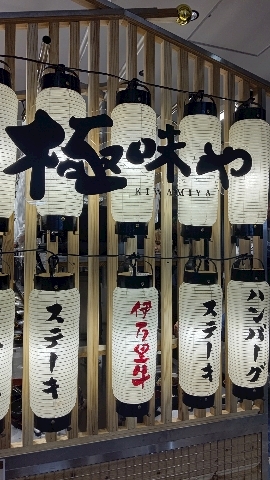 極味や
KIWAMIYA
ステーキ
伊万里牛
ステーキ
ハンバーグ